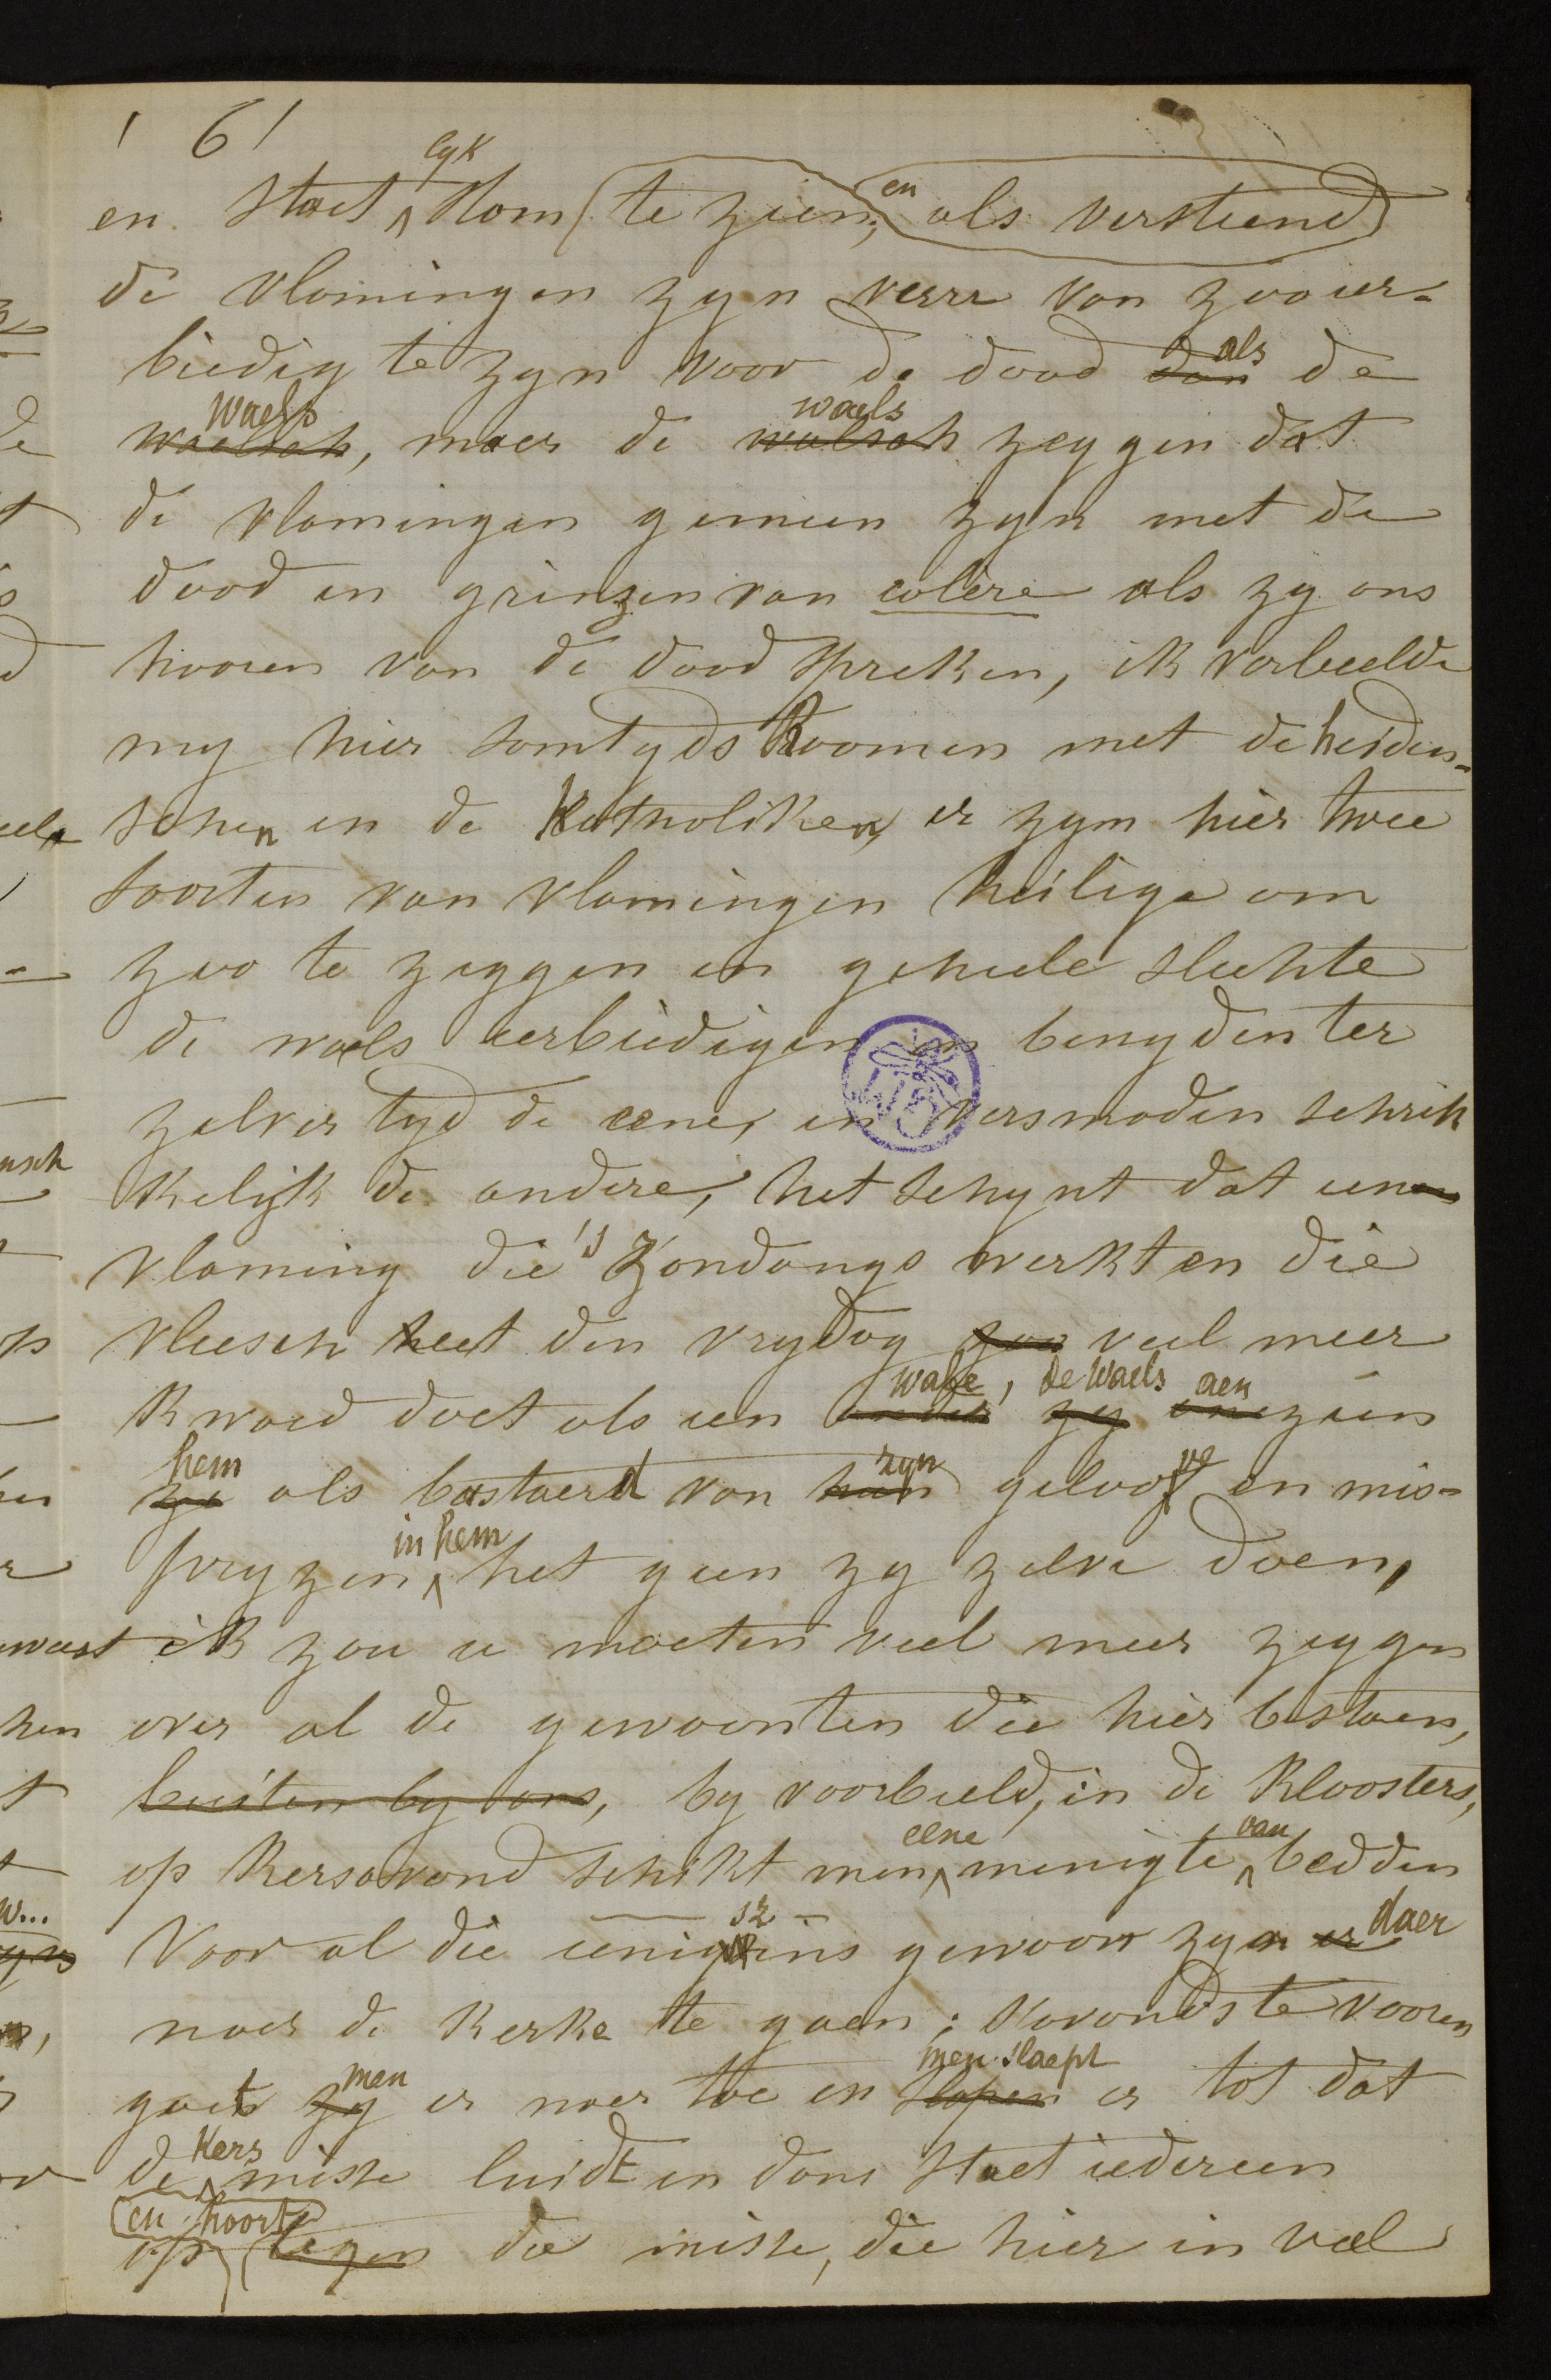 ' 6 /
en staet ^lyk stom (te zien; en als versteend)
de vlamingen zyn verre van zoo eer-
biedig te zyn voor de dood dan als de
waelsch waels, maer de walsch waels zeggen dat
de vlamingen gemeen zyn met de
dood en grinzen van colère als zy ons
hooren van de dood spreken, ik verbeelde
my hier somtyds Roomen met de heiden-
schen en de Katholiken, er zyn hier twee
soorten van vlamingen heilige om
zoo te zeggen en geheele slechte
de waels eerbiedigen en benyden ter
zelver tyd de eene, en versmaden schrik
kelijk de andere, het schynt dat een
vlaming die 's Zondangs werkt en die
vleesch eet den vrydag zoo veel meer
kwaed doet als een ander wale, zy de Waels aen zien
ze hem als bastaerd van hun zyn geloove en mis-
pryzen ^in hem het geen zy zelve doen,
ik zou u moeten veel meer zeggen
over al de gewoonten die hier bestaen,
buiten by ons, by voorbeeld, in de kloosters,
op kersavond schikt men ^eene menigte ^van bedden
Voor al die eenigszins gewoon zyn er daer
naer de kerke te gaen; s'avonds te vooren
gaet zy men er naer toe en slapen men slaept er tot dat
de ^Kers misse luidt en dan staet iedereen
op (en hoort) tegen die misse, die hier in veel